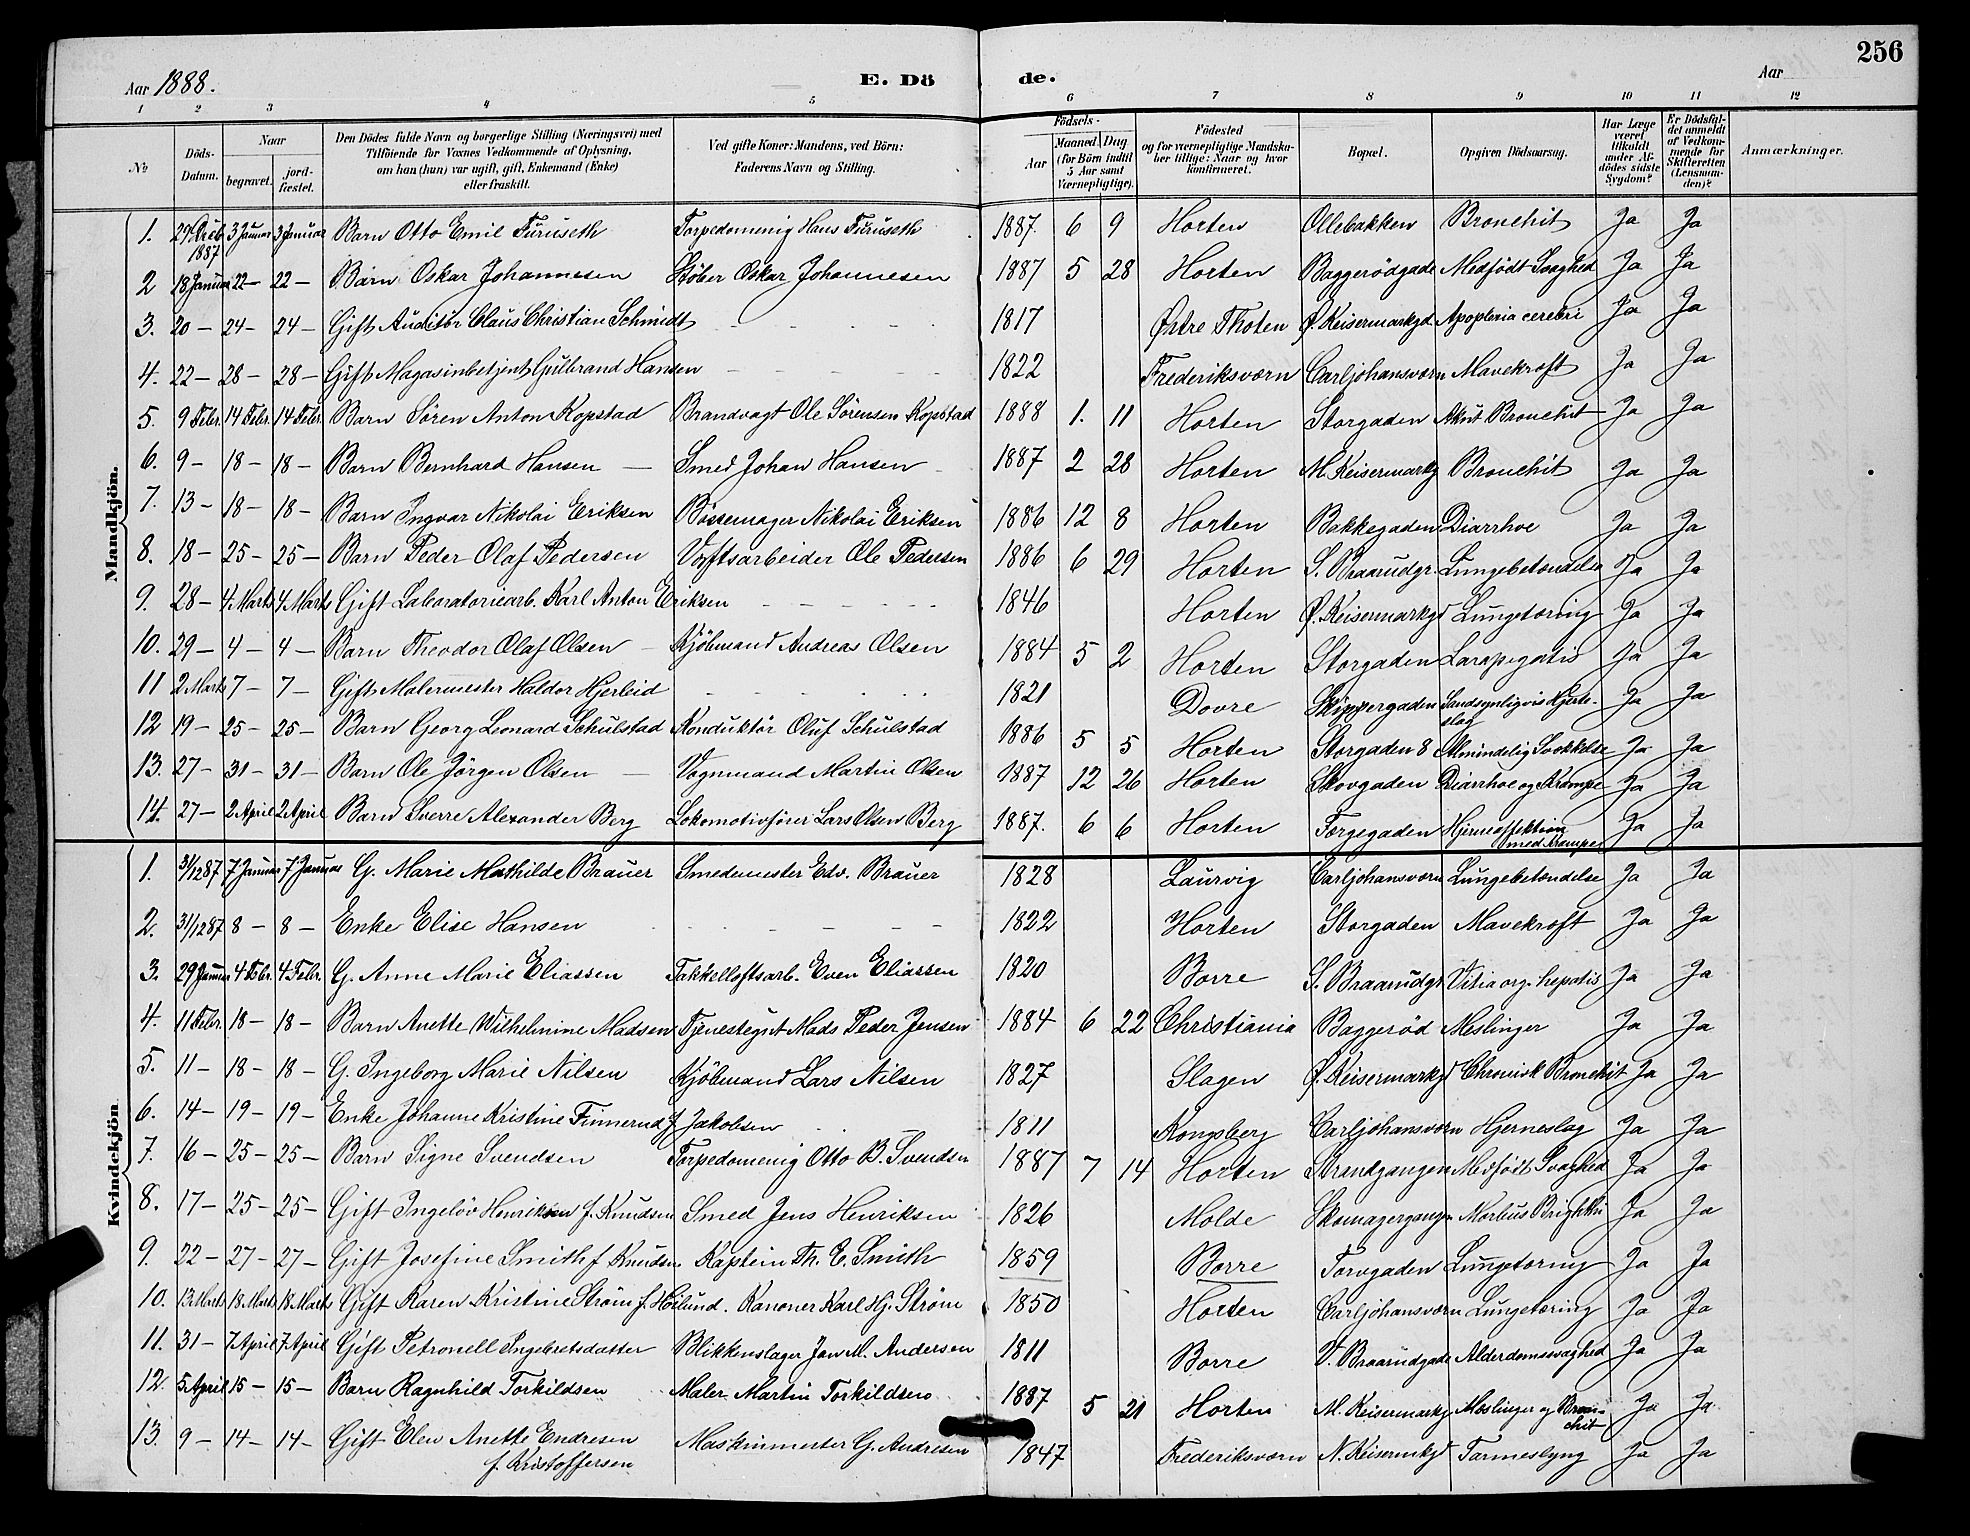 256
Aar 1888. E. Dö de. Aar
1 2 3 4 5 6 7 8 9 10 11 12
No Döds-Datum. Naar begravet. jord-fæstet. Den Dödes fulde Navn og borgerlige Stilling (Næringsvei) med Tilföiende for Voxnes Vedkommende af Oplysning, om han (hun) var ugift, gift, Enkemand (Enke) eller fraskilt. Ved gifte Koner: Mandens, ved Börn: Faderens Navn og Stilling. Födsels- Aar Maaned Dag (for Börn indtil 5 Aar samt Værnepligtige). Födested og for værnepligtige Mandskaber tillige: Naar og hvor konfirmeret. Bopæl. Opgiven Dödsaarsag. Har Læge været tilkaldt under Afdödes sidste Sygdom? Er Dödsfaldet anmeldt af Vedkommende for Skifteretten (Lensmanden)? Anmærkninger.
Mandkjön.
1. 29 Dcbr 1887 3 Januar 3 Januar Barn Otto Emil Furuseth Torpedomenig Hans Furuseth 1887 6 9 Horten Ollebakken Bronchit Ja Ja
2 18 Januar 22 – 22 – Barn Oskar Johannesen Støber Oskar Johannesen 1887 5 28 Horten Baggerødgade Medfødt Svaghed Ja Ja
3. 20 – 24 – 24 – Gift Auditør Claus Christian Schmidt – – – – 1817 Østre Thoten Ø. Keisermarkgd Apoplexia cerebri Ja Ja
4. 22 – 28 – 28 – Gift Magasinbetjent Gulbrand Hansen – – – – 1822 Frederiksværn Carljohansværn Mavekræft Ja Ja
5. 9 Febr. 14 Febr. 14 Febr. Barn Søren Anton Kopstad Brandvagt Ole Sørensen Kopstad 1888 1. 11 Horten Storgaden Akut Bronchit Ja Ja
6. 9 – 18 – 18 – Barn Bernhard Hansen — Smed Johan Hansen 1887 2 28 Horten M. Keisermarkg Bronchit Ja Ja
7. 13 – 18 – 18 – Barn Ingvar Nikolai Eriksen Bøssemager Nikolai Eriksen 1886 12 8 Horten Bakkegaden Diarrhoe Ja Ja
8. 18 – 25 – 25 – Barn Peder Olaf Pedersen Værftsarbeider Ole Pedersen 1886 6 29 Horten S. Braarudgr. Lungebetændelse Ja Ja
9. 28 – 4. Marts 4. Marts Gift Laboratoriearb. Karl Anton Eriksen – – – – 1846 Horten Ø. Keisermarkgd Lungetæring Ja Ja
10. 29 – 4 – 4 – Barn Theodor Olaf Olsen – Kjøbmand Andreas Olsen 1884 5 2 Horten Storgaden Ja Ja
11 2 Marts 7 – 7 – Gift Malermester Haldor Hjerleid – – – – 1821 Dovre Skippergaden Sandsynligvis Hjerte-slag Ja Ja
12 19 – 25 – 25 – Barn Georg Leonard Schulstad Konduktør Oluf Schulstad 1886 5 5 Horten Storgaden 8 Almindelig Svækkelse Ja Ja
13. 27 – 31 – 31 – Barn Ole Jørgen Olsen — Vognmand Martin Olsen 1887 12 26 Horten Skovgaden Diarrhoe og Krampe Ja Ja
14. 27 – 2 April 2 April Barn Sverre Alexander Berg Lokomotivfører Lars Olsen Berg 1887. 6 6 Horten Færgegaden Hjerneaffektion med Krampe Ja Ja
Kvindekjön
1. 31/12 87 7 Januar 7 Januar G. Marie Mathilde Brauer Smedemester Edv. Brauer 1828 Laurvig Carljohansværn Lungebetændelse Ja Ja
2. 31/12 87 8 – 8 – Enke Elise Hansen – – – – 1822 Horten Storgaden Mavekræft Ja Ja
3. 29 Januar 4 Febr. 4 Febr. G. Anne Marie Eliassen Takkelloftsarb. Even Eliassen 1820 Borre S. Braarudgt Vitia org. hepatis Ja Ja
4. 11 Febr. 18 – 18 – Barn Anette Wilhelmine Madsen Tjenestegut Mads Peder Jensen 1884 6 22 Christiania Baggerød Meslinger Ja Ja
5. 11 – 18 – 18 – G. Ingeborg Marie Nilsen Kjøbmand Lars Nilsen 1827 Slagen Ø. Keisermarkgd Chronisk Bronchit Ja Ja
6. 14 – 19 – 19 – Enke Johanne Kristine Finnerud f. Jakobsen 1811 Kongsberg Carljohansværn Hjerneslag Ja Ja
7. 16 – 25 – 25 – Barn Signe Svendsen Torpedomenig Otto B. Svendsen 1887 7 14 Horten Strandgangen Medfødt Svaghed Ja Ja
8. 17 – 25 – 25 – Gift Ingeløv Henriksen f. Knudsen Smed Jens Henriksen 1826 Molde Skomagergangen Morbus Brightii Ja Ja
9. 22 – 27 – 27 – Gift Josefine Smith f Knudsen Kaptein Th. E. Smith 1859 Borre Torvgaden Lungetæring Ja Ja
10. 13 Marts 18 Marts 18 Marts Gift Karen Kristine Strøm f. Høilund. Kanoner Karl Hj. Strøm 1850 Horten Carljohansværn Lungetæring Ja Ja
11. 31 – 7 April 7 April Gift Petronell Ingebretsdatter Blikkenslager Jan M. Andersen 1811 Borre V. Braarudgade Alderdomssvaghed Ja Ja
12. 5 April 15 – 15 – Barn Ragnhild Torkildsen Maler Martin Torkildsen 1887 5 21 Horten M. Keisermarkg Meslinger og Bronchit Ja Ja
13. 9 – 14 – 14 – Gift Elen Anette Endresen Maskinmester G. Andresen 1847 Frederiksværn N. Keisermkgd Tarmeslyng Ja Ja
f. Kristoffersen